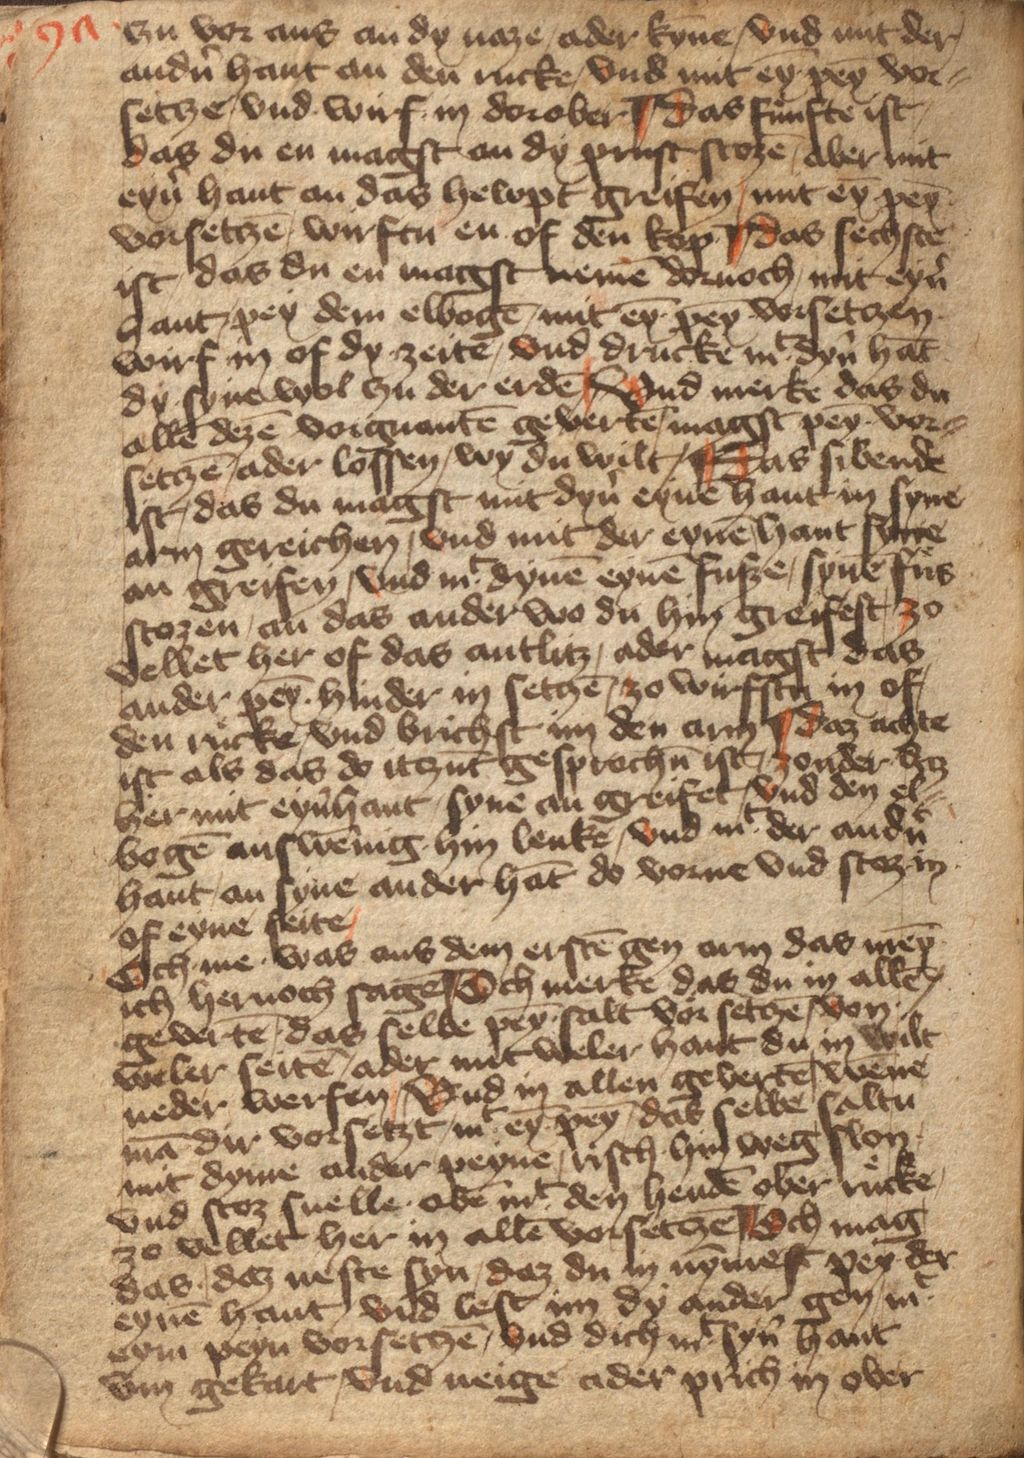 zu vor aus an dy naze / ader kyne / vnd mit der
andn̄ hant an den rucke / vnd mit ey͞ pey͞ vor-
setze / vnd wirf in dorober Das fůnfte ist /
das du en magst an dy prust stoze͞ / aber mit
eyn̄ hant an das hewpt greifen / mit ey͞ pey͞
vorsetze͞ / wirftu en of den kop Das sechste
ist das du en magst neme͞ dornoch / mit eyn̄
hant / pey dem elboge͞ / mit ey͞ pey͞ vorsetzen
wirf in of dy zeite͞ / vnd drucke mt dyn̄ hāt
dy syne wol zu der erde͞ Vnd merke das du
alle͞ deze͞ vorguante͞ geverte͞ / magst pey vor-
setze͞ / ader lossen / wy du wilt / Das sibende
ist / das du magst mit dyn̄ eyne͞ hant in syne
arm gereichen / vnd mit der eyne͞ hant syne
an greifen / vnd mt dyne͞ eyne͞ fusze / syne͞ fůs
stozen / an das ander wo du hin greifest / zo
vellet her of das antlitz / ader magst das
ander pey͞ hinder in setze͞ / zo wirfstu in of
den růcke / vnd brichst im den arm daz achte
ist als das do itzu͞t gesproch͞n ist / zonder
her mit eyn̄ hant / syne an greifet / vnd den el-
boge͞ auswe͞nig hin lenke͞ / vnd mt der andn̄
hant / an syne ander hāt do vorne vnd stoz in
of eyne seite
Och me was aus dem erste͞ gen arm das
ich hernoch sage͞ Och merke das du in alle͞
geverte͞ / das selbe pey͞ salt vor setze͞ / von
weler seite͞ / ader mit weler hant du in wilt
neder werfen / Vnd in allen geverte͞ / we͞ne
mā dir vorsetzt / mt ey͞ pey͞ / das selbe saltu
mit dyme ander peyne / risch hin weg slon
vnd stoz snelle obe͞ mt den hende͞ ober růcke
zo vellet her in alle͞ vorsetze͞ Och mag
das / daz neste syn / daz du in nymest pey der
eyne͞ hant / vnd lest im dy ander gen / mt
eym peyn vorsetze͞ / vnd dich mt syn̄ hant
vm gekart / vnd neige ader prich in ober